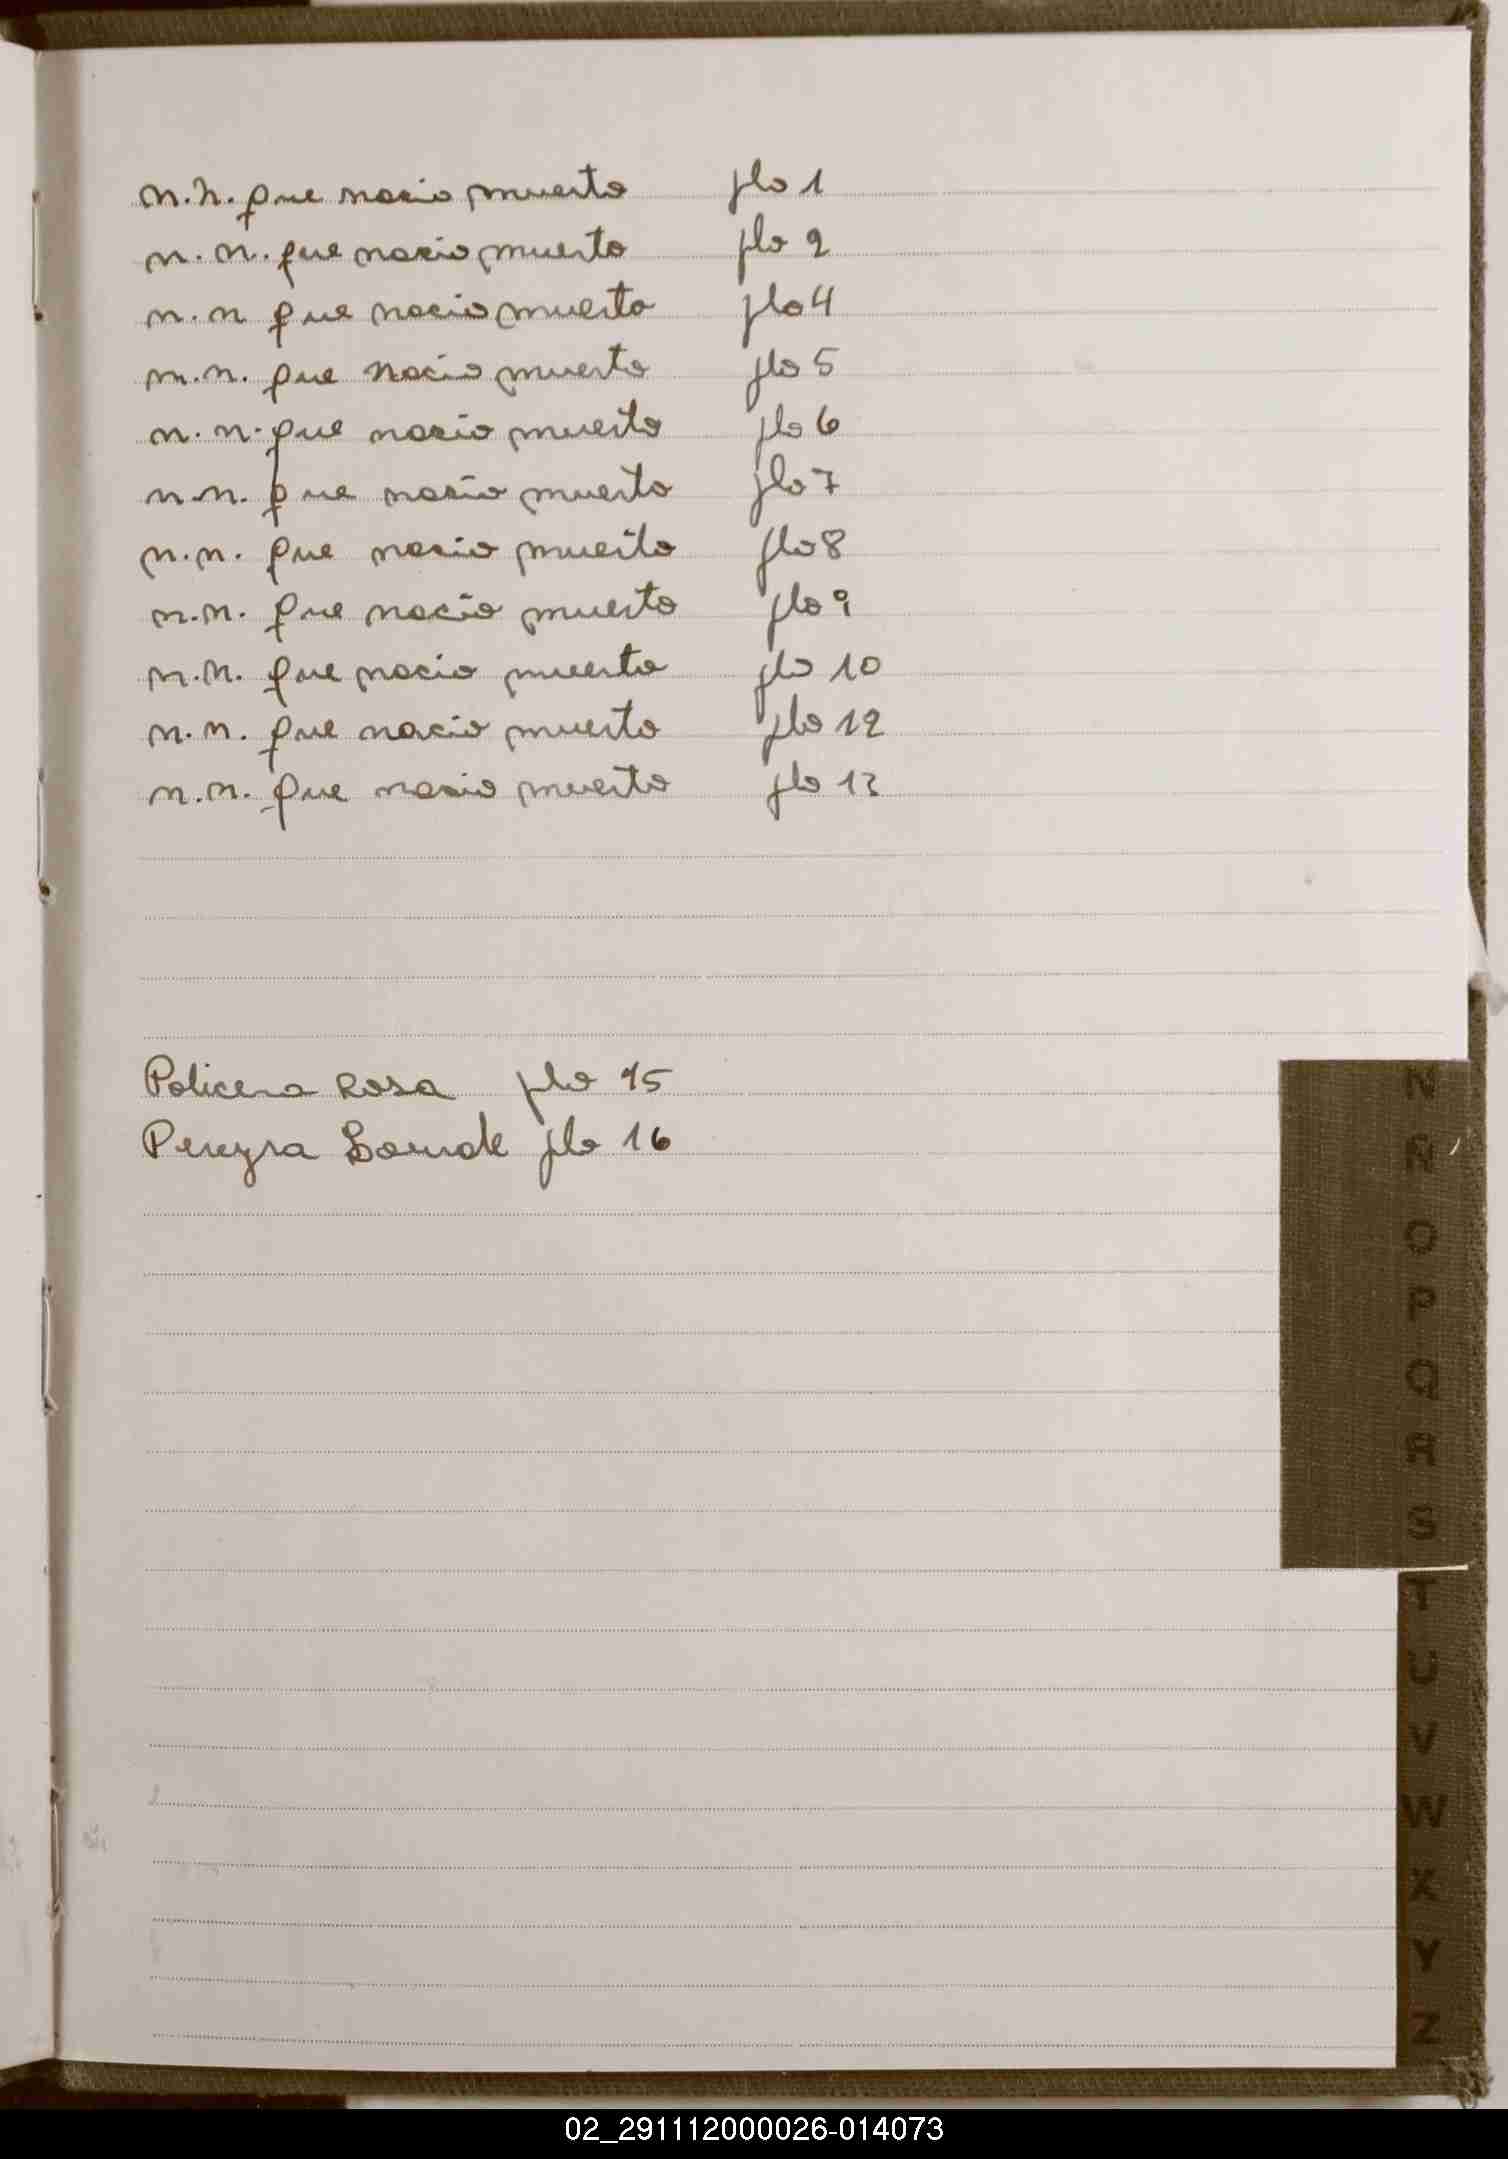 n.n. que nacio muerto flo 1
n.n. que nacio muerto flo 2
n.n que nacio muerto flo 4
n.n. que nacio muerto flo 5
n.n. que nacio muerto flo 6
n.n. que nacio muerto flo 7
n.n. que nacio muerto flo 8
n.n. que nacio muerto flo 9
n.n. que nacio muerto flo 10
n.n. que nacio muerto flo 12
n.n. que nacio muerto flo 13
Policena Rosa flo 15
Pereyra flo 16
N
Ñ
O
P
Q
R
S
T
U
V
W
X
Y
Z
02_291112000026-014073